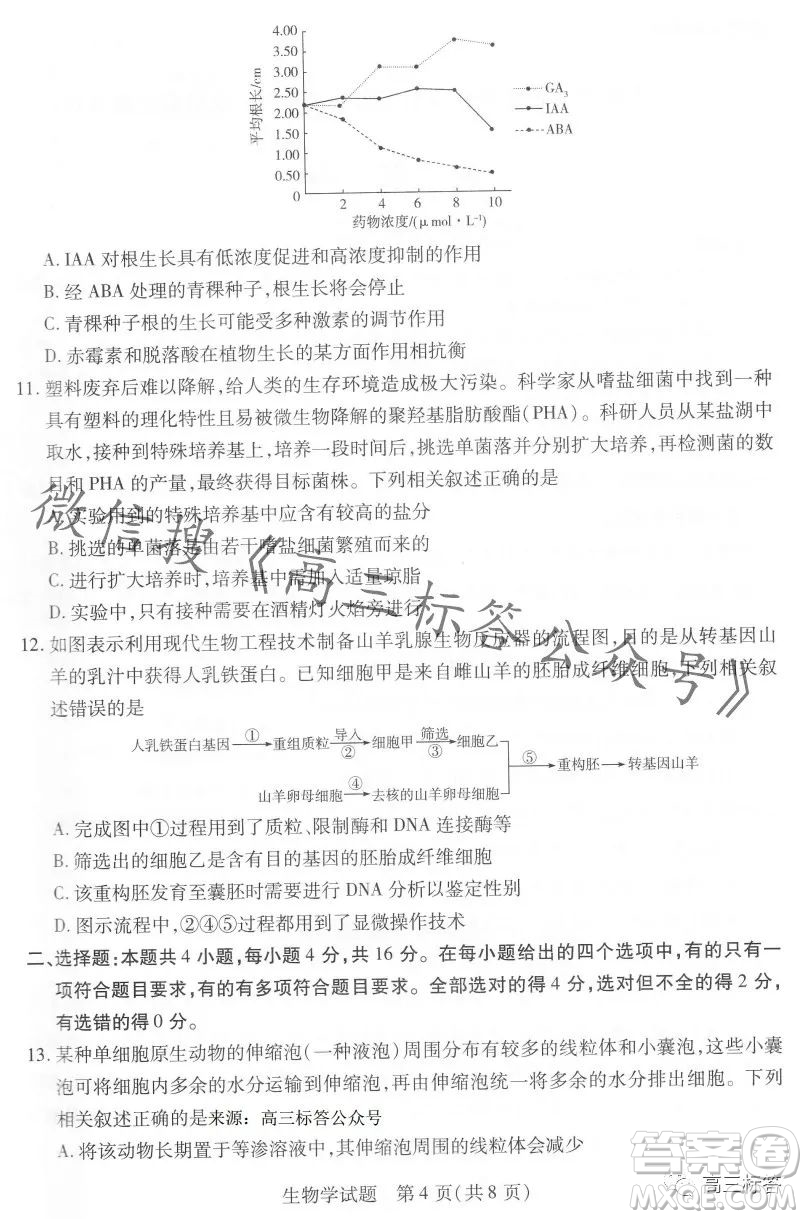 4.00
3.50
3.00
2.50
2.00
1.50
1.00
0.50
0
平均根长/cm
2 4 6 8 10
药物浓度/(μmol·L⁻¹)
GA₃
IAA
ABA
A. IAA 对根生长具有低浓度促进和高浓度抑制的作用
B. 经 ABA 处理的青稞种子,根生长将会停止
C. 青稞种子根的生长可能受多种激素的调节作用
D. 赤霉素和脱落酸在植物生长的某方面作用相抗衡
11. 塑料废弃后难以降解,给人类的生存环境造成极大污染。科学家从嗜盐细菌中找到一种
具有塑料的理化特性且易被微生物降解的聚羟基脂肪酸酯(PHA)。科研人员从某盐湖中
取水,接种到特殊培养基上,培养一段时间后,挑选单菌落分别扩大培养,再检测菌的数
目和 PHA 的产量,最终获得目标菌株。下列相关叙述正确的是
A. 实验用到的特殊培养基中应含有较高的盐分
B. 挑选的单菌落是由若干嗜盐细菌繁殖而来的
C. 进行扩大培养时,培养基中需加入适量琼脂
D. 实验中,只有接种需要在酒精灯火焰旁进行
微信搜《高三标答公众号》
12. 如图表示利用现代生物工程技术制备山羊乳腺生物反应器的流程图,目的是从转基因山
羊的乳汁中获得人乳铁蛋白。已知细胞甲是来自雌山羊的胚胎成纤维细胞,下列相关叙
述错误的是
人乳铁蛋白基因 ① 重组质粒 导入 ② 细胞甲 筛选 ③ 细胞乙
⑤ 重构胚 转基因山羊
山羊卵母细胞 ④ 去核的山羊卵母细胞
A. 完成图中①过程用到了质粒、限制酶和 DNA 连接酶等
B. 筛选出的细胞乙是含有目的基因的胚胎成纤维细胞
C. 该重构胚发育至囊胚时需要进行 DNA 分析以鉴定性别
D. 图示流程中,②④⑤过程中用到了显微操作技术
二、选择题:本题共 4 小题,每小题 4 分,共 16 分。在每小题给出的四个选项中,有的只有一
项符合题目要求,有的有多项符合题目要求。全部选对的得 4 分,选对但不全的得 2 分,
有选错的得 0 分。
13. 某种单细胞原生动物的伸缩泡(一种液泡)周围分布有较多的线粒体和小囊泡,这些小囊
泡可将细胞内多余的水分运输到伸缩泡中,再由伸缩泡统一将多余的水分排出细胞。下列
相关叙述正确的是来源:高三标答公众号
A. 将该动物长期置于等渗溶液中,其伸缩泡周围的线粒体会减少
生物学试题 第 4 页(共 8 页)
高三标答
答案圈
MXQE.COM